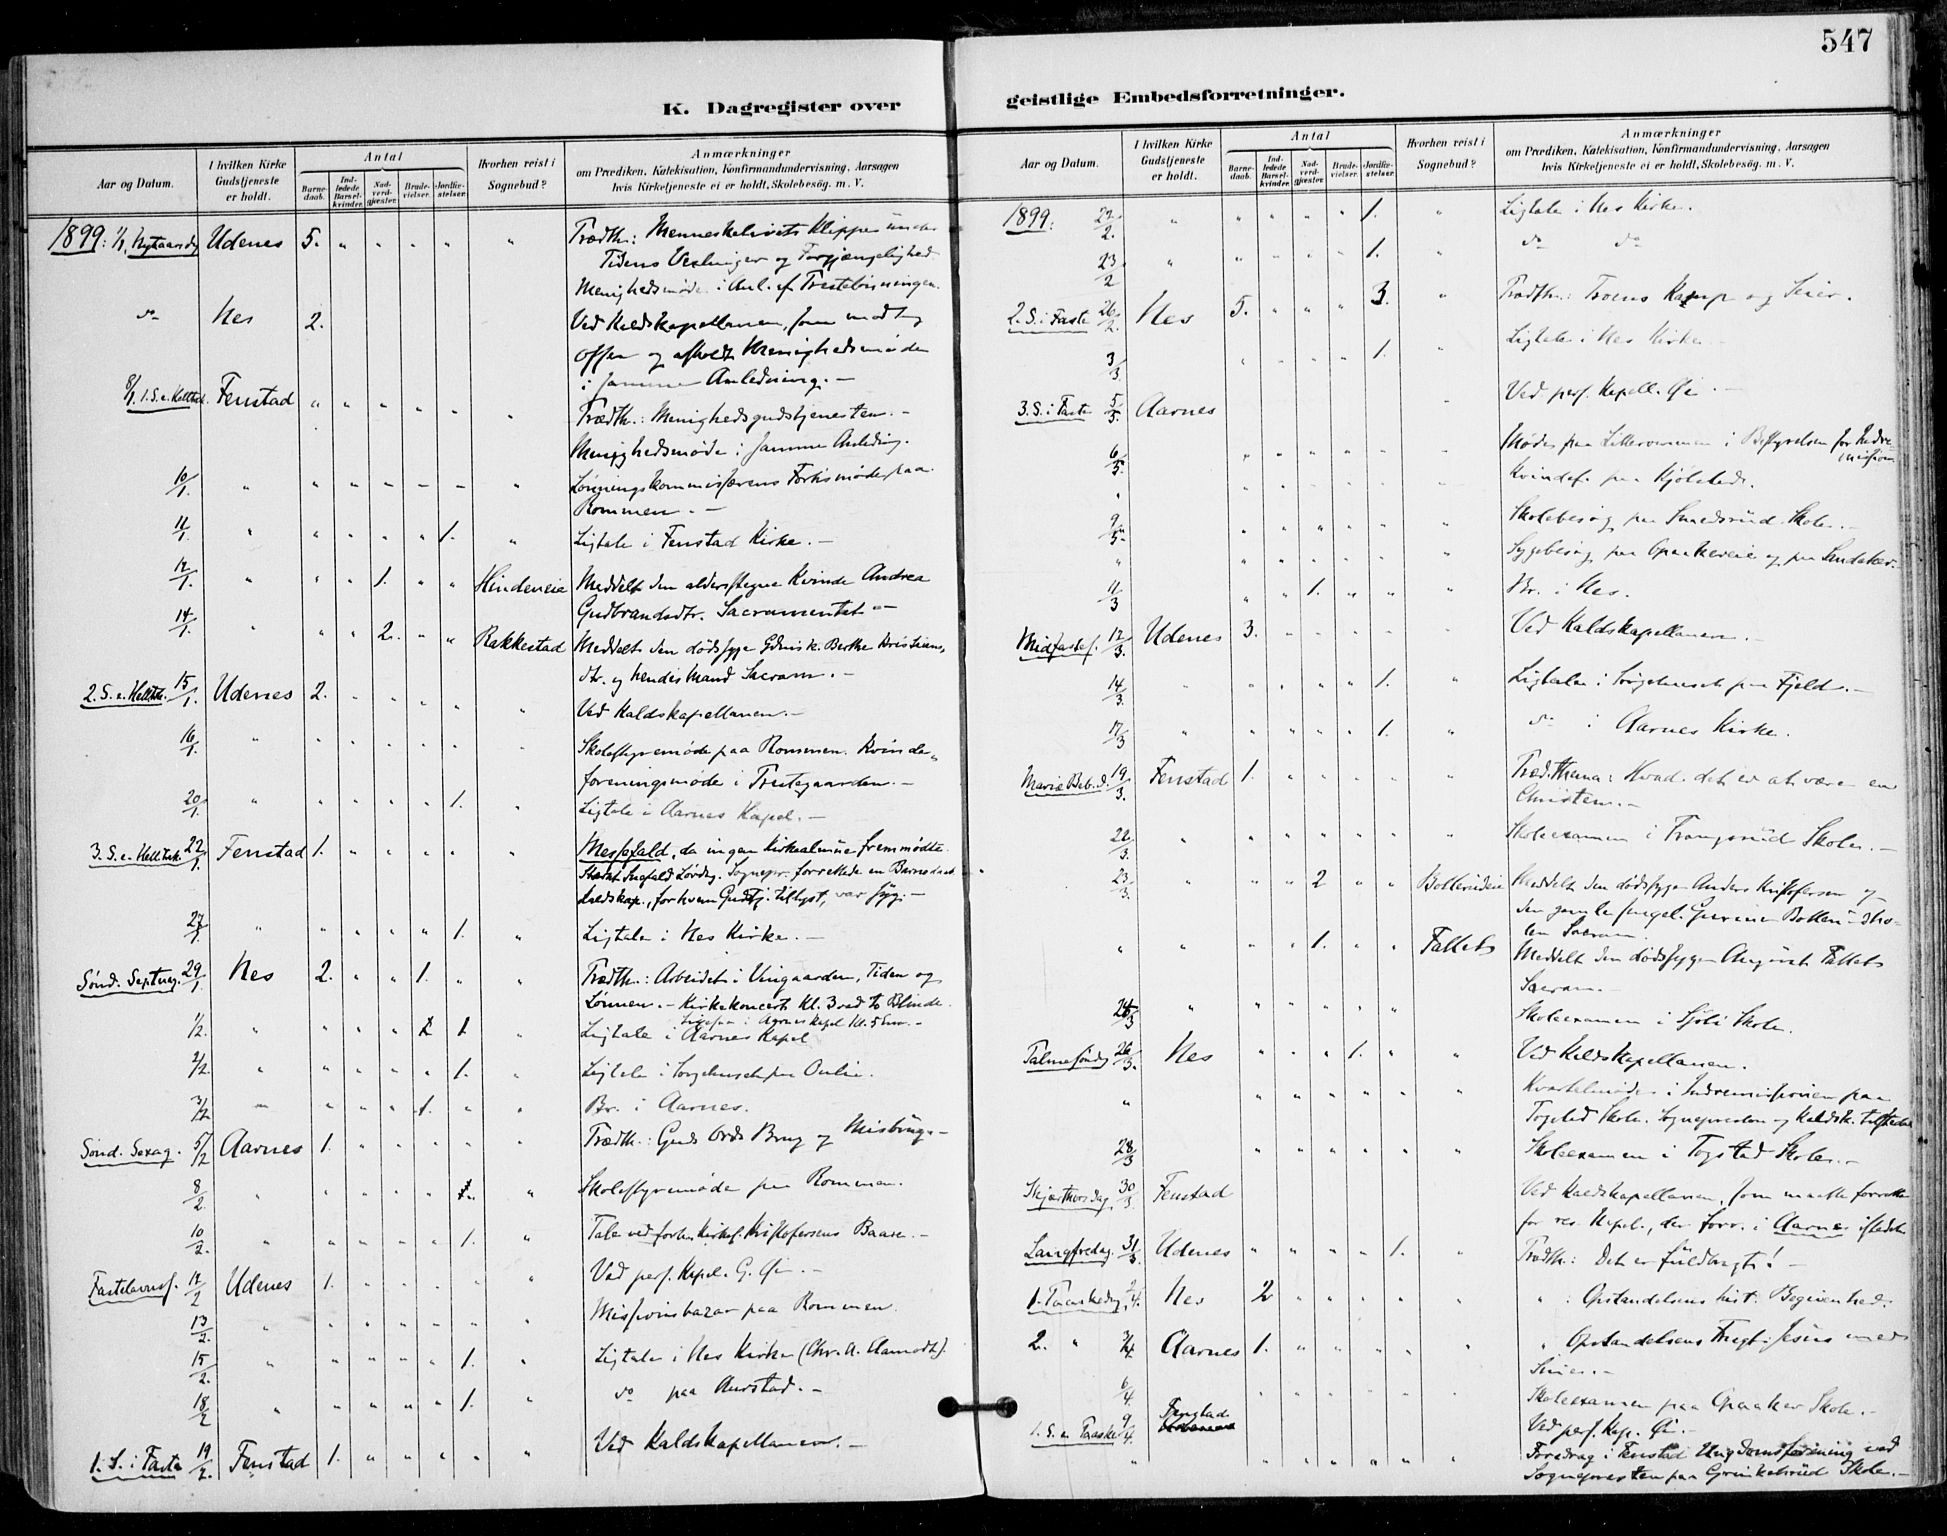 547
K. Dagregister over
Aar og Datum.
I hvilken Kirke Gudstjeneste er holdt.
Antal
Barnedaab.
Indledede Barselkvinder.
Nadverdgjæster.
Brudevielser.
Jordfæstelser.
Hvorhen reist i Sognebud?
Anmærkninger
om Prædiken, Katekisation, Konfirmandundervisning, Aarsagen
hvis Kirketjeneste ei er holdt, Skolebesøg. m. V.
1899: 1/1, Nytaarsdg Udenes 5. " " " " " Prædth.: Menneskelivets Klippe under
Tidens Vexlinger og Forgjængelighed
Menighedsmøde i Anl. af
do Nes 2. Ved Kaldskapellanen, som modtog
Offer og afholdt Menighedsmøde
i samme Anledning. —
8/1 1. S. e. Helltrek. Fenstad " " " " " " Prædth.: Menighedsgudstjenesten. —
Menighedsmøde i samme Anledning.
10/1 " " " Lønningskommissærens Forhsmøde paa
Rommen. —
11/1 " " " " " 1. " Ligtale i Fenstad Kirke. —
12/1 " " " 1. " " Hindeneie Meddelt den alderstegne Kvinde Andrea
Gudbrandsdtr. Sacramentet —
14/1 " " " 2. " " Rakkestad Meddelt den dødssyge Berthe Kristians,
dtr. og hendes Mand Sacram. —
2. S. e. Helltrk. 15/1 Udenes 2. " " " " " Ved Kaldskapellanen. —
16/1 " " " " " " " Skolestyremøde paa Rommen. Kvinde„
foreningsmøde i Prestegaarden. —
20/1 " " " " " 1. " Ligtale i Aarnes Kapel. —
3. S. e. Helltrk. 22/1 Fenstad 1. " " " " " Messefald, da ingen Kirkealmue fremmødte.
Sognepr. forrettede en Barnedaab
Kaldskap., for hvem Gudstj. tillyst, var syg. —
27/1 " " " " " 1. " Ligtale i Nes Kirke. —
Sønd. Septuag. 29/1 Nes 2. " " 1. " " Prædth.: Arbeidet i Vingaarden, Tiden og
Lønnen. — Kirkekoncert Kl. 3 ved to Blinde.
i Aarnes Kapel Kl. 5 Em. —
1/2 " " " " 1. " Ligtale i Aarnes Kapel
2/2 " " " " " 1. " Ligtale i Sørgehuset paa Oulie.
3/2 " " " " 1. " " Br. i Aarnes.
Sønd. Sexag. 5/2 Aarnes 1. " " " " Prædth.: Guds Ords Brug og Misbrug. —
8/2 " " " " " " Skolestyremøde paa Rommen.
10/2 " " " " " 1. " Tale ved Kristofersens Baare. —
Fastelavnss. 12/2 Udenes 1. " " " " " Ved pers. Kapel. G. Øi. —
13/2. " " " " " " " Missionsbazar paa Rommen.
15/2. " " " " " 1. " Ligtale i Nes Kirke (Chr. A. Aamodt).
18/2 " " " " " 1. " do paa Aurstad. —
1. S. i Faste 19/2. Fenstad 1. " " " " " Ved Kaldskapellanen. —
geistlige Embedsforretninger.
Aar og Datum.
I hvilken Kirke Gudstjeneste er holdt.
Antal
Barnedaab.
Indledede Barselkvinder.
Nadverdgjæster.
Brudevielser.
Jordfæstelser.
Hvorhen reist i Sognebud?
Anmærkninger
om Prædiken, Katekisation, Konfirmandundervisning, Aarsagen
hvis Kirketjeneste ei er holdt, Skolebesøg. m. V.
1899. 22/2. " " " " " 1. " Ligtale i Nes Kirke.
23/2 " " " " " 1. " do do
2. S. i Faste 26/2. Nes 5. " " " 3. " Prædth.: Troens Kamp og Seier.
3/3. " " " " 1. " Ligtale i Nes Kirke. —
3. S. i Faste 5/3. Aarnes " Ved pers. Kapell. Øi. —
6/3. " " " " " " Møde paa Lillerommen i Bestyrelsen for Indre-
mission
" " " " " " " Kvindef. paa Kjølstad.
9/3 " " " " " " Skolebesøg paa Smedsrud Skole. —
" " " " " " " Sygebesøg paa Opaakereie og paa
11/3 " " 1. " " " Br. i Nes.
Midfastes. 12/3. Udenes 3. " " " " " Ved Kaldskapellanen. —
14/3. " " " " " 1. " Ligtale i Sørgehuset paa Fjeld. —
17/3 " " " " " 1. " do i Aarnes Kirke.
Mariæ Beb. d. 19/3. Fenstad 1. " " " " " Præd. Thema: Hvad det er at være en
Christen. —
22/3. " " " " " " " Skoleexamen i Trangsrud Skole. —
23/3. " " " 2 " " Meddelt den dødssyge Anders Kristofersen og
den gamle
Sacram.
" " " " 1. " " Fallets Meddelt den dødssyge August Fallets
Sacram. —
25/3 " " " " " " Skoleexamen i Sjøli Skole.
Palmesøndg 26/3. Nes " " " 1. " " Ved Kaldskapellanen.
" " " " " " " Kvartalmøde i Indremissionen paa
Togstad Skole. Sognepresten og Kaldsk. tilstede
28/3 " " " " " " Skoleexamen i Togstad Skole. —
Skjærthorsdag. 30/3 Fenstad Ved Kaldskapellanen, som maatte forrette
for res. Kapel., der forr. i Aarnes istedet
Langfredag. 31/3 Udenes " " " " 1. " Prædth.: Det er fuldbragt! —
1. Paaskedg. 2/4. Nes 2 " " " " " " : Opstandelsens hist. Begivenhed.
2. " 3/4 Aarnes 1. " " " " " " Opstandelsens Frugt: Jesus med
6/4. " " " " " " Skoleexamen paa Opaaker Skole. —
1. S. e. Paaske 9/4. Fenstad Ved pers. Kap. Øi. —
" " " " " " " Foredrag i Fenstad Ungdomsforening ved
Sognepresten paa Grinkelsrud Skole. —